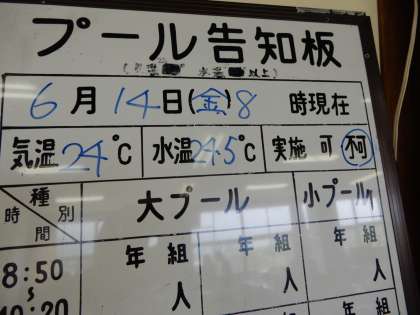 プール告知板
6月14日(金)8時現在
気温24℃ 水温24.5℃ 実施 可 不可
種別
時間
大プール 小プール
8:50
〜
10:20
年 組 年 組 年 組
人 人 人
年 組